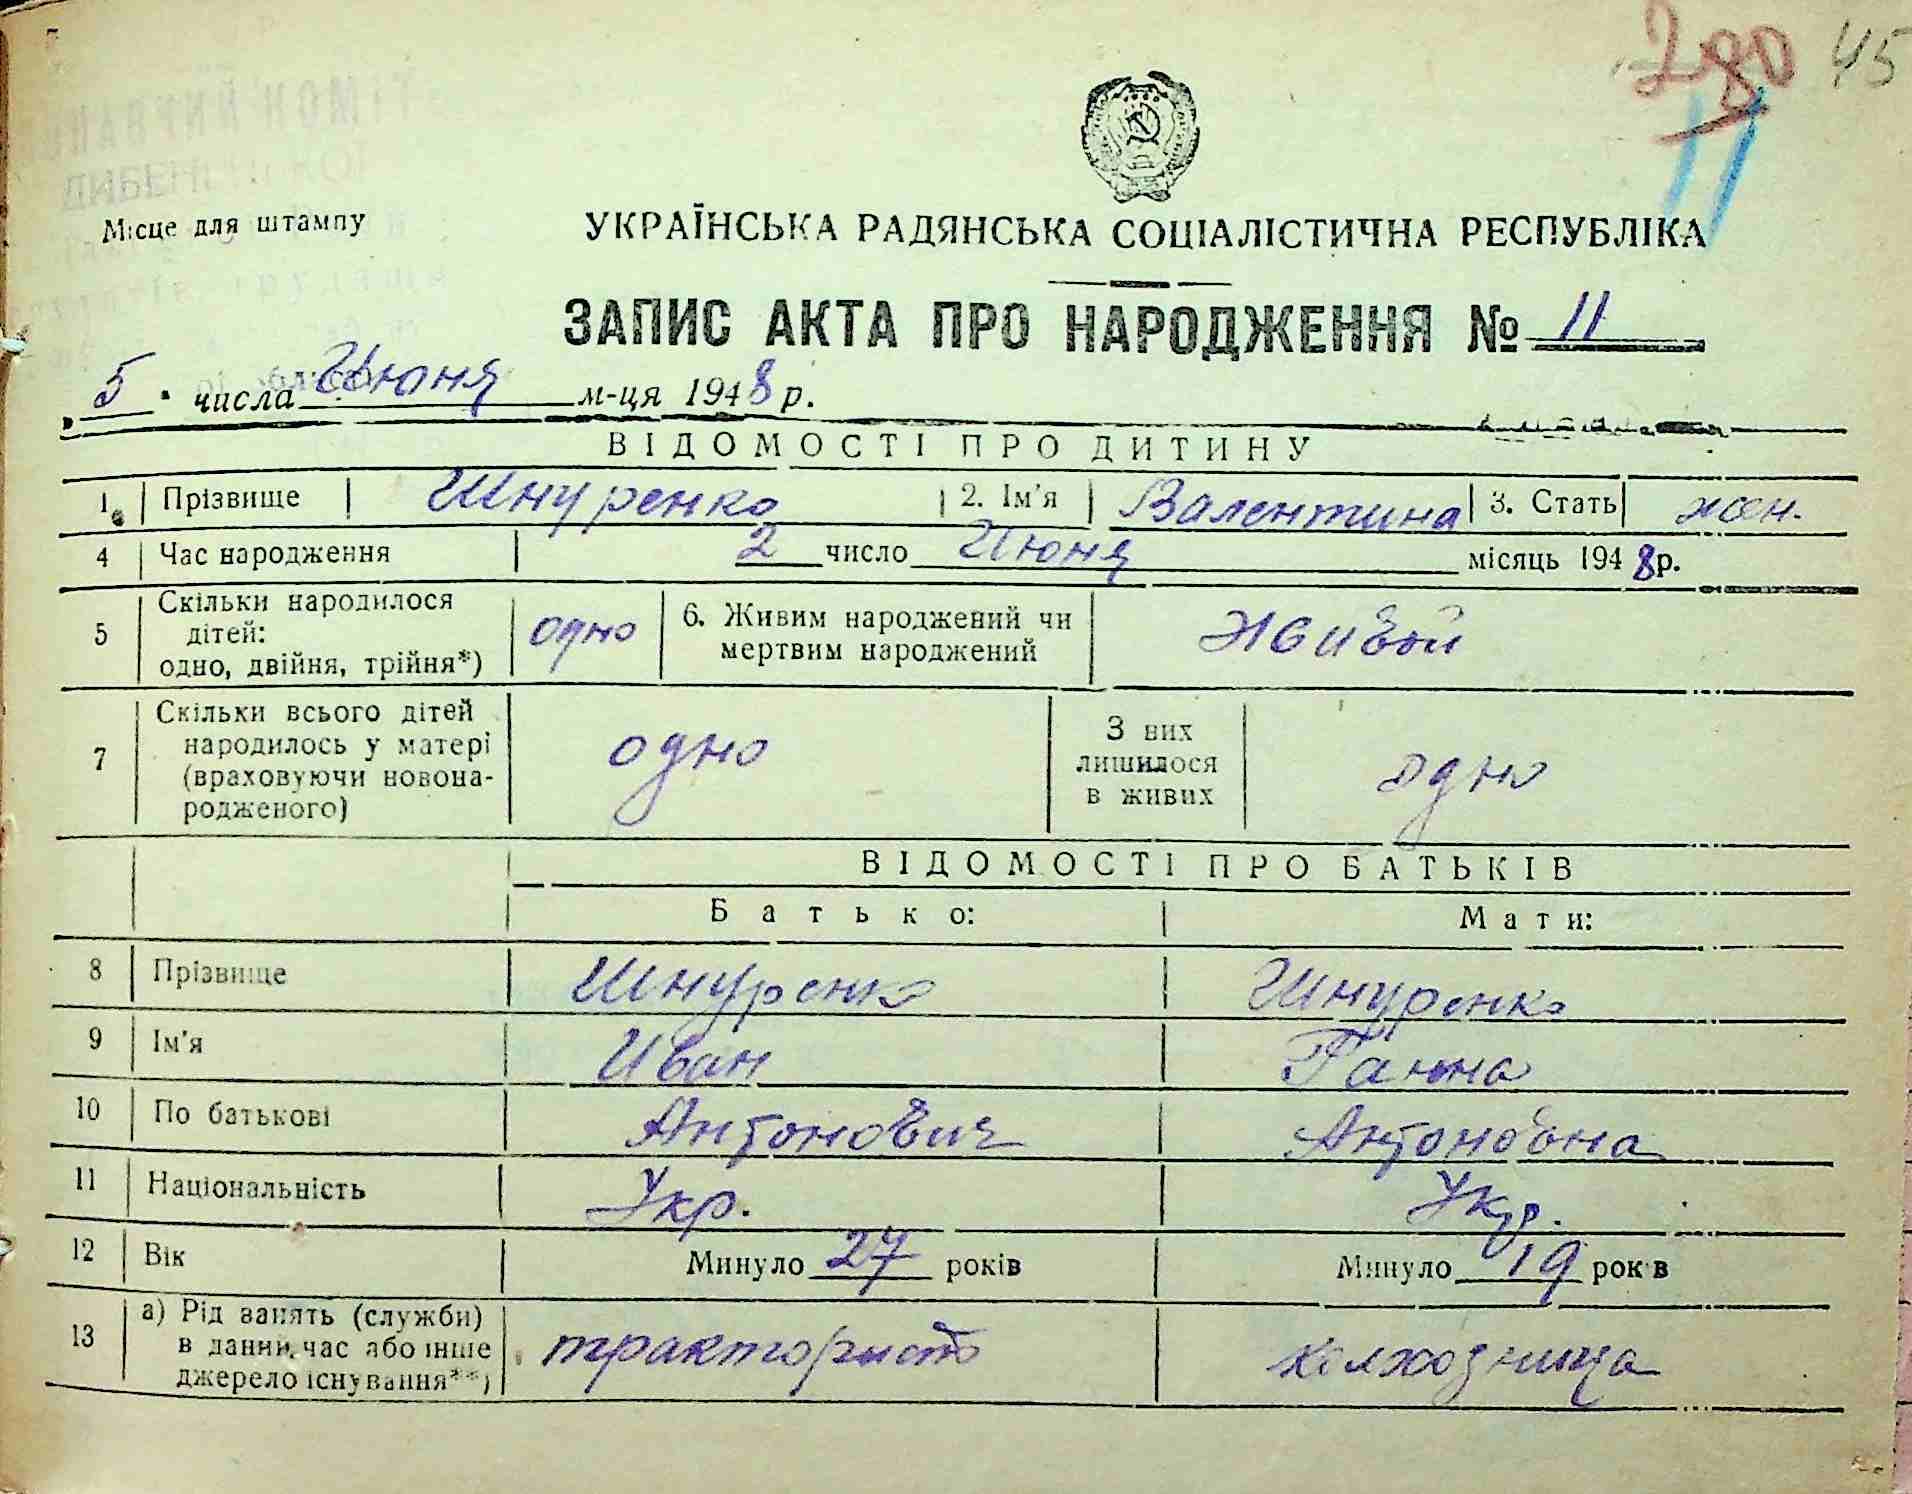 280 45
11
Місце для штампу
УКРАЇНСЬКА РАДЯНСЬКА СОЦІАЛІСТИЧНА РЕСПУБЛІКА
ЗАПИС АКТА ПРО НАРОДЖЕННЯ № 11
„5" числа Июня м-ця 1948 р.
ВІДОМОСТІ ПРО ДИТИНУ
1. Прізвище Шнуренко 2. Ім'я Валентина 3. Стать жен.
4 Час народження 2 число Июня місяць 1948 р.
5 Скільки народилося дітей: одно, двійня, трійня*) одно 6. Живим народжений чи мертвим народжений Живой
7 Скільки всього дітей народилось у матері (враховуючи новона-родженого) одно З них лишилося в живих одно
ВІДОМОСТІ ПРО БАТЬКІВ
Батько: Мати:
8 Прізвище Шнуренко Шнуренко
9 Ім'я Иван Ганна
10 По батькові Антонович Антоновна
11 Національність Укр. Укр.
12 Вік Минуло 27 років Минуло 19 років
13 а) Рід занять (служби) в даний час або інше джерело існування**) тракторист колхозница